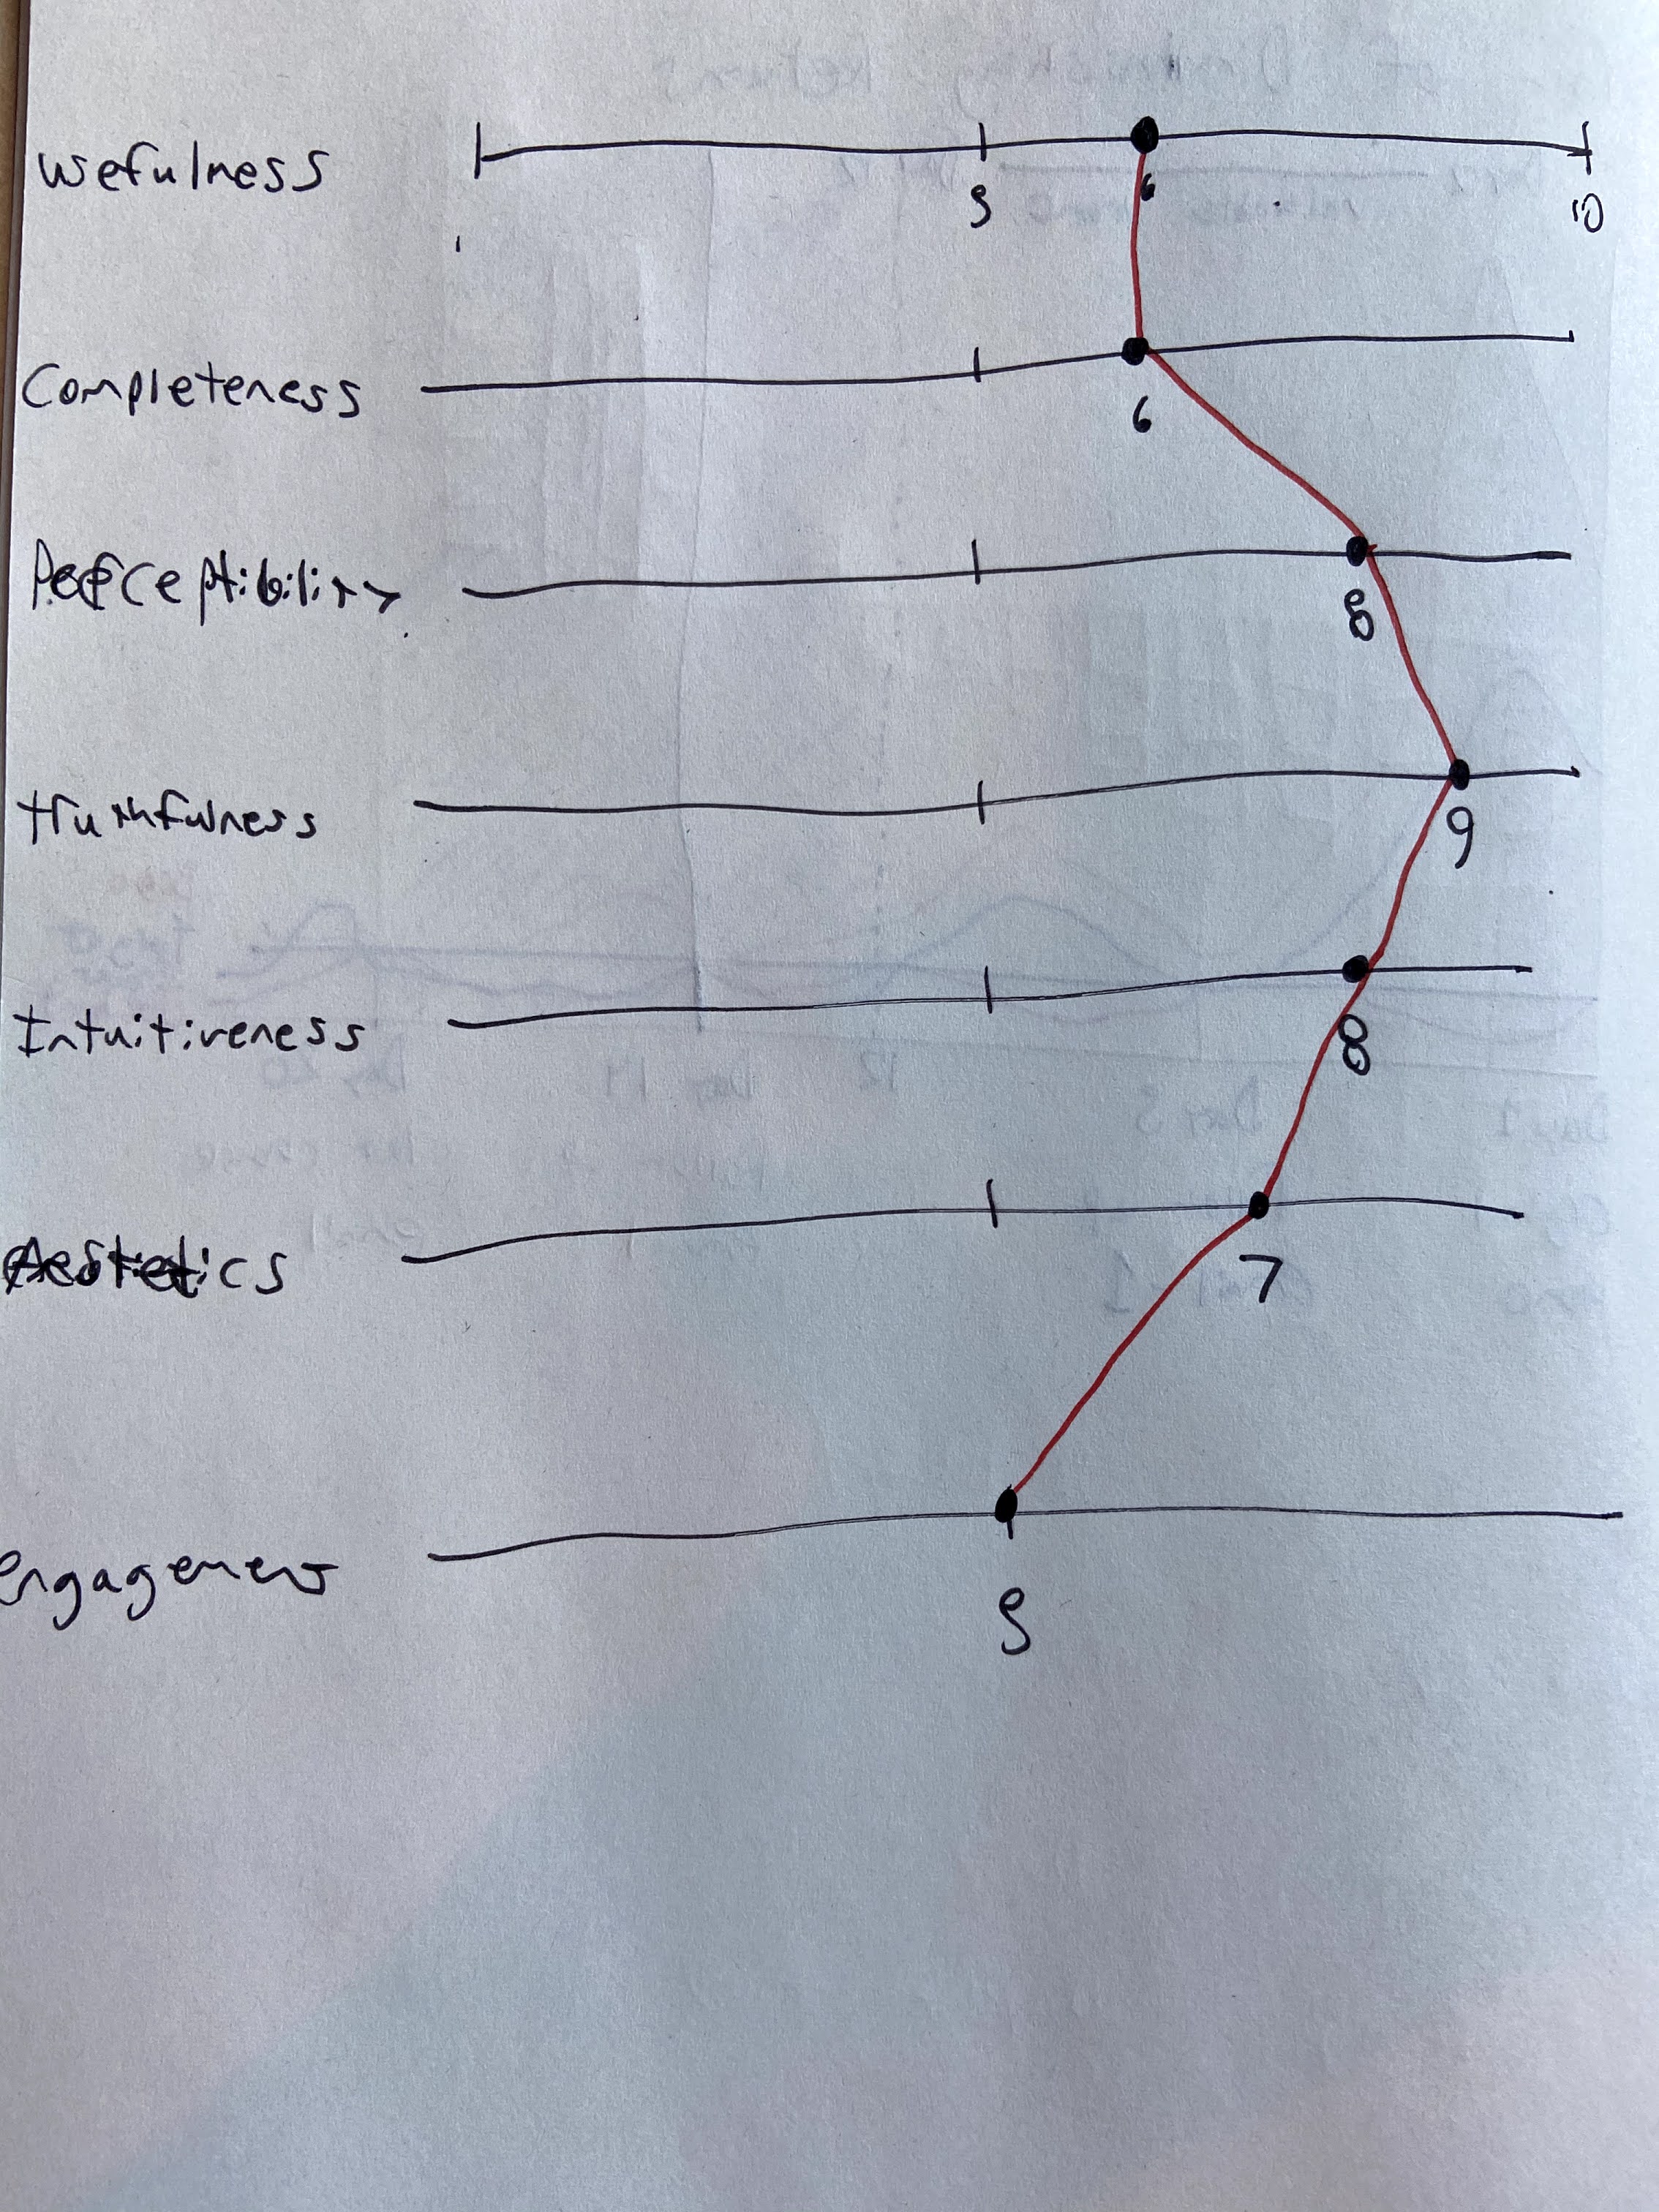 usefulness
5 6 10
Completeness
6
Perceptibility
8
truthfulness
9
Intuitiveness
8
Aestetics
7
engagement
5